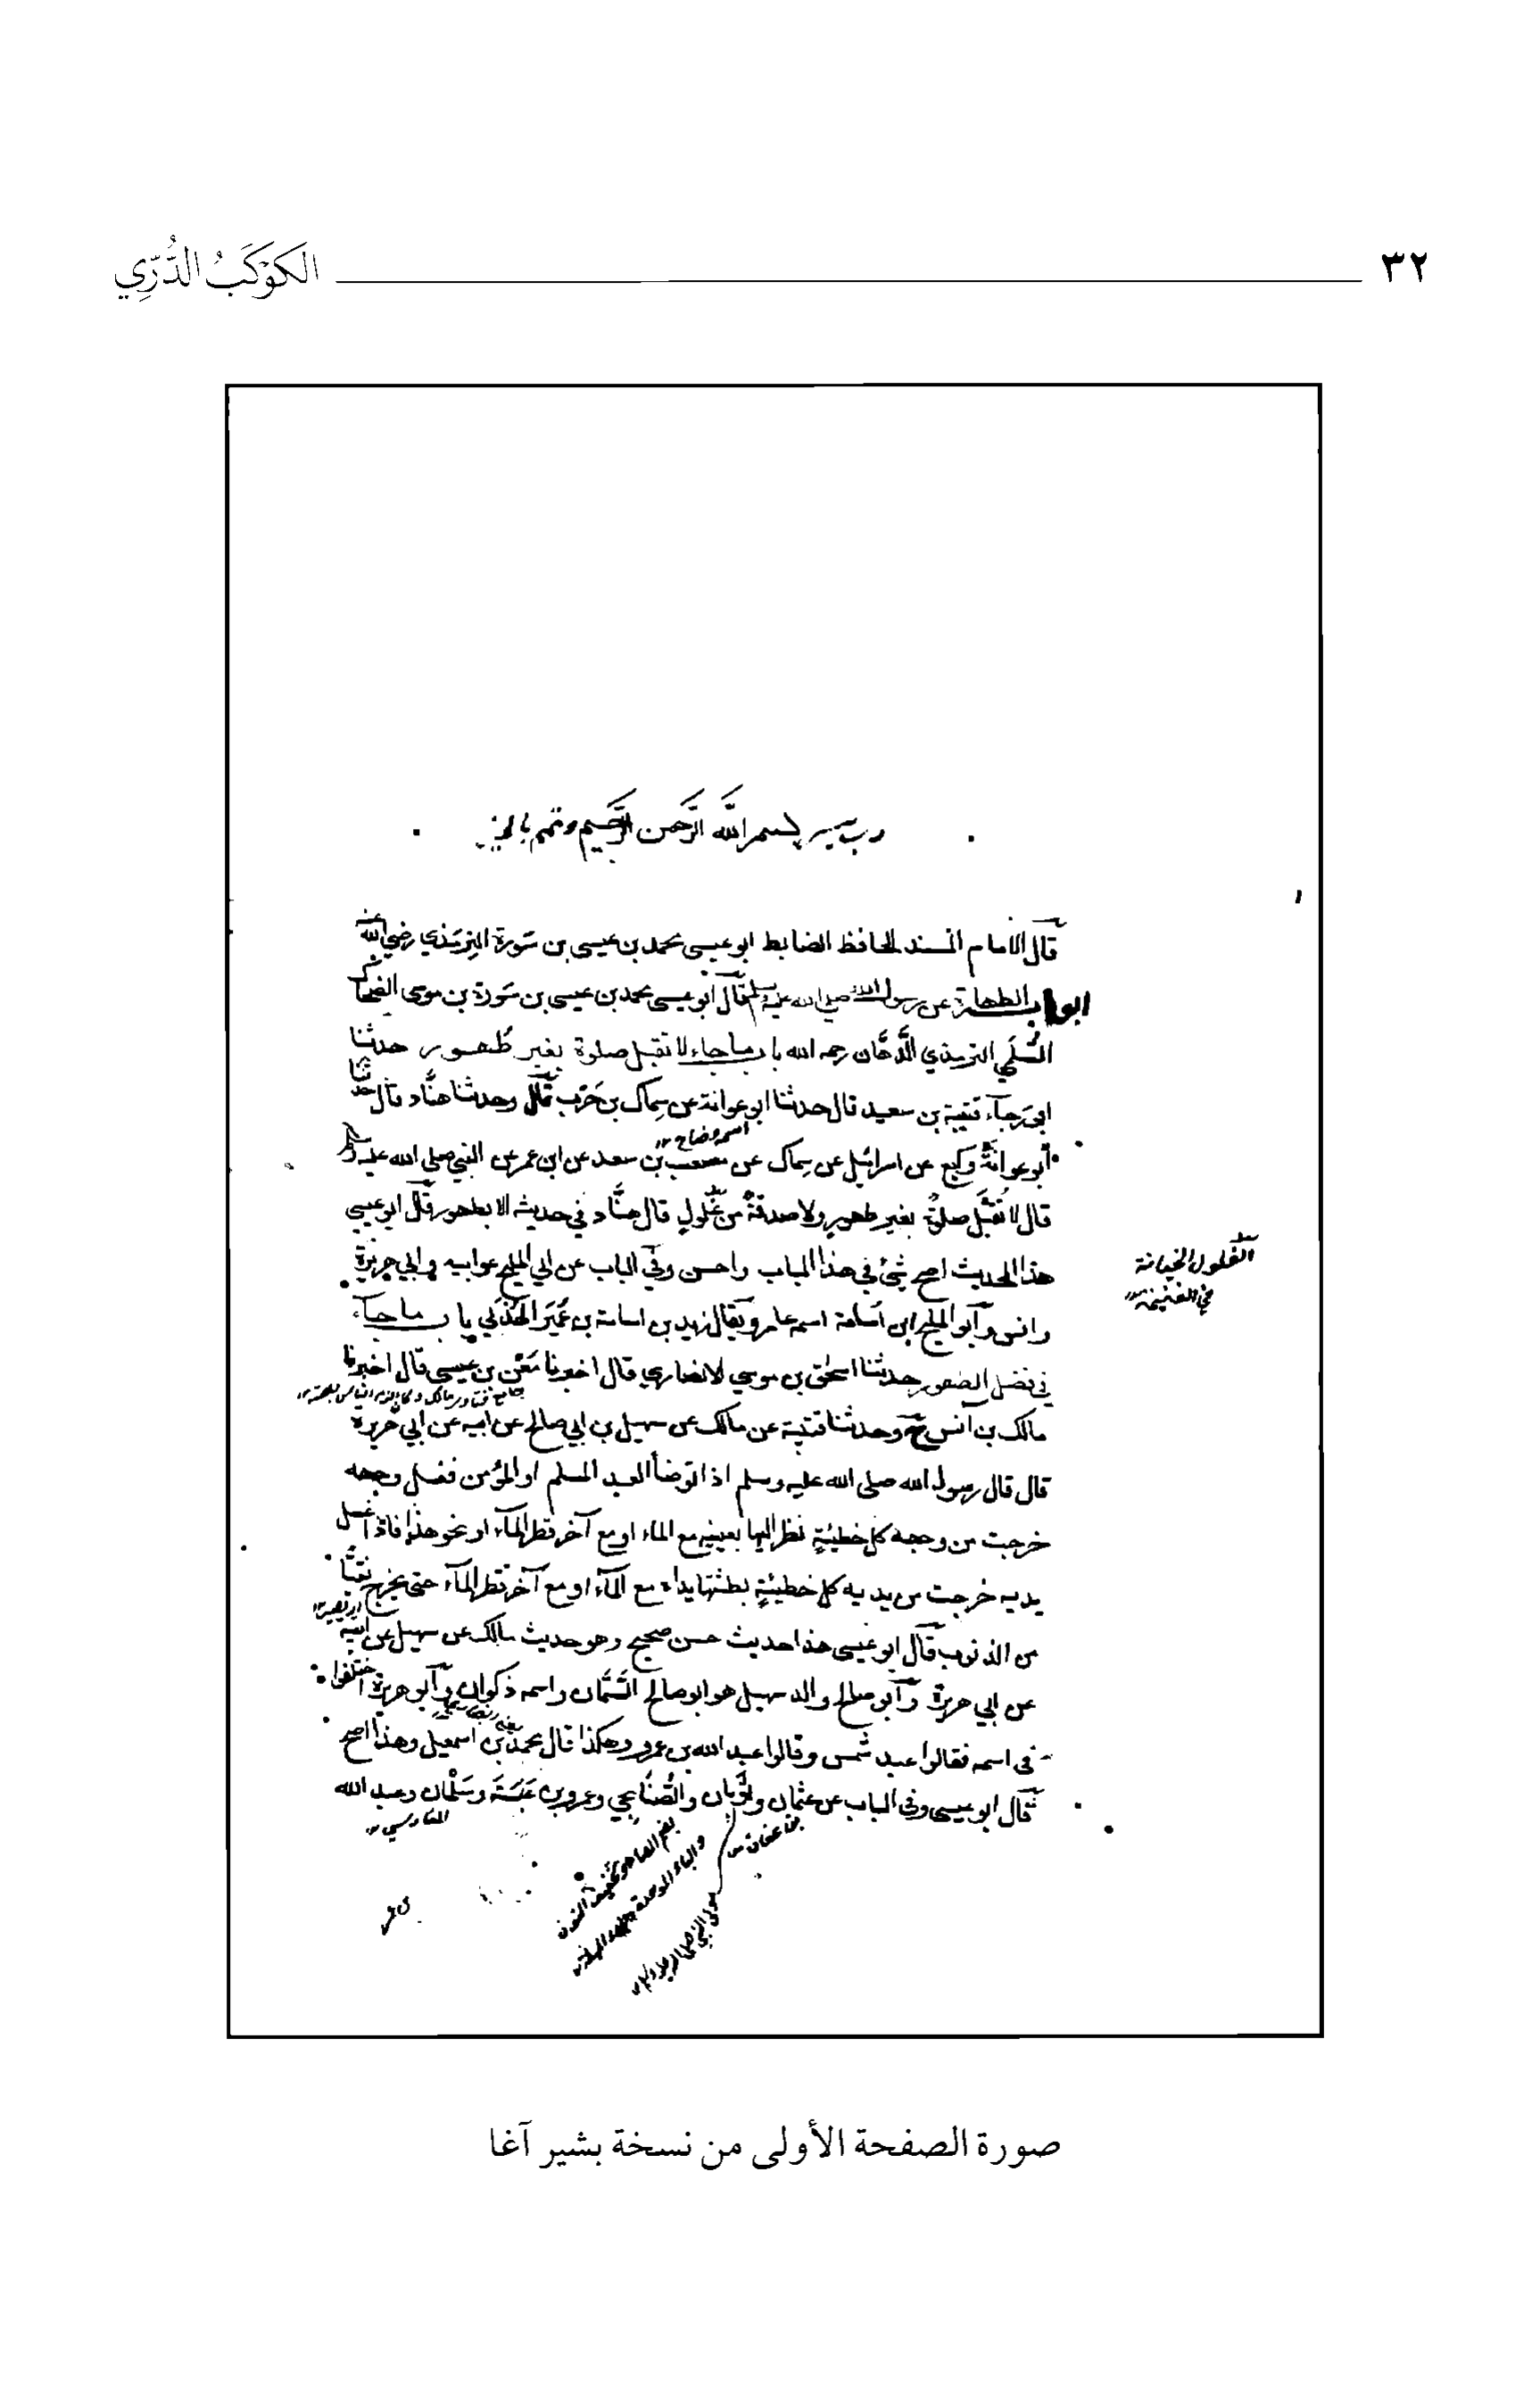 ٣٢ الكَوْكَبُ الدُّرِّي
رب يسر بسم الله الرَّحمن الرَّحيم وتمم بالخير
قال الامام السند الحافظ الضابط ابو عيسى محمد بن عيسى بن سَورة الترمذي رضي الله عنه
ابواب الطهارة عن رسول الله صلى الله عليه وسلم قال أبو عيسى محمد بن عيسى بن سَورة بن موسى الضحاك
السُّلَمي الترمذي الدَّهَّان رحمه الله باب ما جاء لا تقبل صلوة بغير طُهور حدثنا
ابو رَجآء قتيبة بن سعيد قال حدثنا ابو عوانة عن سِماك بن حَرب قال وحدثنا هنَّاد قال حدثنا
اسمه وضاح ١٢
أبو عوانة وكيع عن اسرائيل عن سِماك عن مصعب بن سعد عن ابن عمر عن النبي صلى الله عليه وسلم
قال لا تُقبَل صلوةٌ بغير طهور ولا صدقةٌ من غُلولٍ قال هنَّاد في حديثه الا بطهور قال ابو عيسى
الغلول الخيانة
في الغنيمة
هذا الحديث اصح شيء في هذا الباب واحسن وفي الباب عن ابي المليح عن ابيه وابي هريرة
وانس وأبو المليح ابن أسامة اسمه عامر ويقال زيد بن اسامة بن عُمَير الهُذَلي باب ما جاء
في فضل الطهور حدثنا اسحٰق بن موسى الانصاري قال اخبرنا مَعْن بن عيسى قال اخبرنا
مالك بن أنس ح وحدثنا قتيبة عن مالك عن سهيل بن ابي صالح عن ابيه عن ابي هريرة
قال قال رسول الله صلى الله عليه وسلم اذا توضأ العبد المسلم او المؤمن فغسل وجهه
خرجت من وجهه كل خطيئةٍ نظر اليها بعينيه مع الماء او مع آخر قطر المآء او نحو هذا فاذا غسل
يديه خرجت من يديه كل خطيئةٍ بطشتها يداه مع المآء او مع آخر قطر المآء حتى يخرج نقيًّا
من الذنوب قال ابو عيسى هذا حديث حسن صحيح وهو حديث مالك عن سهيل عن ابيه
عن ابي هريرة وأبو صالح والد سهيل هو ابو صالح السَّمَّان واسمه ذكوان وأبو هريرة اختلفوا
في اسمه فقالوا عبد شمس وقالوا عبد الله بن عمرو وهكذا قال محمد بن اسمعيل وهذا اصح
قال ابو عيسى وفي الباب عن عثمان وثَوبان والصُّنابحي وعمرو بن عَبَسَة وسَلْمان وعبد الله
بن عفان
بضم الصاد وتخفيف النون
والباء الموحدة
صورة الصفحة الأولى من نسخة بشير آغا